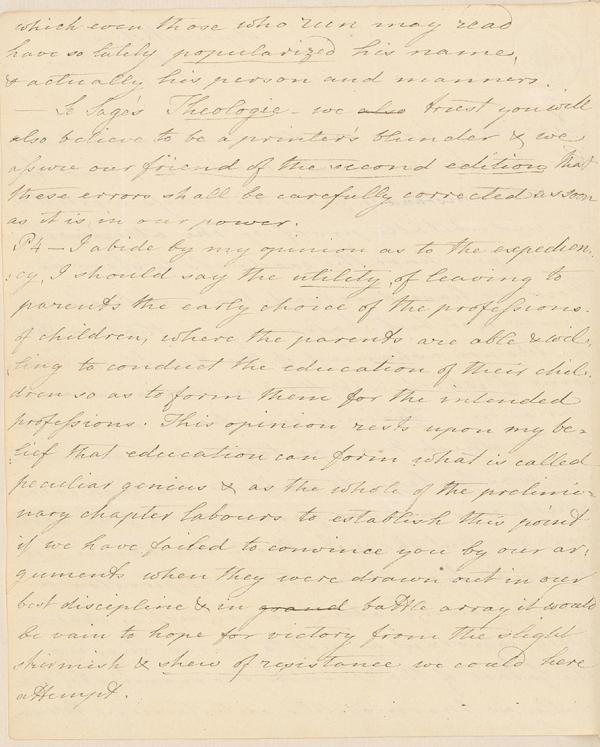 which even those who run may read
have so lately popularized his name,
& actually his person and manners.
— Le Sage's Theologie – we also trust you will
also believe to be a printer's blunder & we
assure our friend of the second edition that
these errors shall be carefully corrected as soon
as it is in our power.
P4 — I abide by my opinion as to the expedien-
:cy, I should say the utility, of leaving to
parents the early choice of the professions
of children, where the parents are able & wil-
ling to conduct the education of their chil-
dren so as to form them for the intended
professions. This opinion rests upon my be=
lief that education can form what is called
peculiar genius & as the whole of the prelimi-
nary chapter labours to establish this point
if we have failed to convince you by our ar-
guments when they were drawn out in our
best discipline & in grand battle array it would
be vain to hope for victory from the slight
skirmish & shew of resistance we could here
attempt.